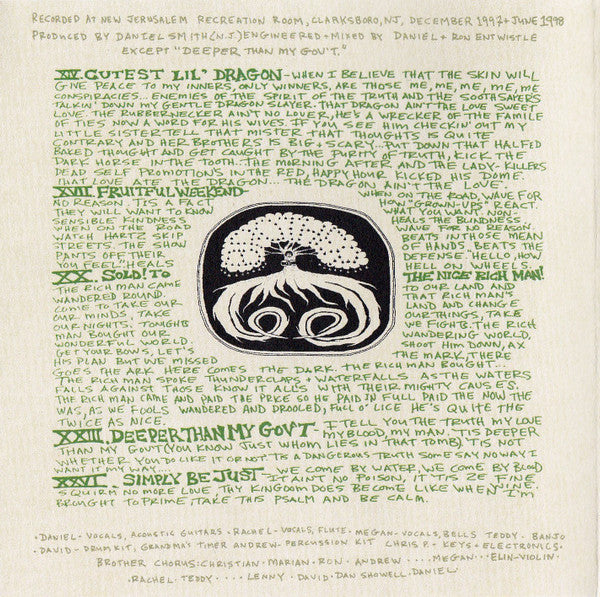 RECORDED AT NEW JERUSALEM RECREATION ROOM, CLARKSBORO, NJ, DECEMBER 1997 + JUNE 1998
PRODUCED BY DANIEL SMITH (N.J.) ENGINEERED + MIXED BY DANIEL + RON ENTWISTLE
EXCEPT "DEEPER THAN MY GOV'T."
XIV. CUTEST LIL' DRAGON - WHEN I BELIEVE THAT THE SKIN WILL
GIVE PEACE TO MY INNERS, ONLY WINNERS, ARE THOSE ME, ME, ME, ME, ME
CONSPIRACIES... ENEMIES OF THE SPIRIT OF THE TRUTH AND THE SOOTHSAYERS
TALKIN' DOWN MY GENTLE DRAGON SLAYER. THAT DRAGON AIN'T THE LOVE SWEET
LOVE. THE RUBBERNECKER AIN'T NO LOVER, HE'S A WRECKER OF THE FAMILE
OF TIES NOW A WORD FOR HIS WIVES. IF YOU SEE HIM CHECKIN' OUT MY
LITTLE SISTER TELL THAT MISTER THAT THOUGHTS IS QUITE
CONTRARY AND HER BROTHERS IS BIG + SCARY. PUT DOWN THAT HALFED
BAKED THOUGHT AND GET CAUGHT BY THE PURITY OF TRUTH, KICK THE
DARK HORSE IN THE TOOTH. THE MORNING AFTER AND THE LADY-KILLERS
DEAD SELF PROMOTIONS IN THE RED, HAPPY HOUR KICKED HIS DOME.
THAT LOVE ATE THE DRAGON... THE DRAGON AIN'T THE LOVE.
XVII FRUITFUL WEEKEND WHEN ON THE ROAD, WAVE FOR
NO REASON. TIS A FACT, HOW "GROWN-UPS" REACT.
THEY WILL WANT TO KNOW THAT YOU WANT NONE.
SENSIBLE KINDNESS HEALS THE BLINDNESS
WHEN ON THE ROAD WAVE FOR NO REASON.
WATCH HARTZ SKIP BEATS IN THOSE MEAN
STREETS. THE SHOW OF HANDS, BEATS THE
PANTS OFF THEIR DEFENSE. "HELLO, HOW
YOU FEEL" HEALS HELL ON WHEELS.
XX. SOLD! TO THE NICE RICH MAN!
THE RICH MAN CAME TO OUR LAND AND
WANDERED ROUND. THAT RICH MAN'S
COME TO TAKE OUR LAND AND CHANGE
OUR MINDS, TAKE OUR THINGS, TAKE
OUR NIGHTS. TONIGHT WE FIGHT. THE RICH
MAN BOUGHT OUR WANDERING WORLD,
WONDERFUL WORLD. SHOOT HIM DOWN, AX
GET YOUR BOWS, LET'S THE MARK, THERE
HIS PLAN BUT WE MISSED
GOES THE ARK HERE COMES THE DARK. THE RICH MAN BOUGHT...
THE RICH MAN SPOKE THUNDERCLAPS + WATERFALLS AS THE WATERS
FALLS AGAINST THOSE KNOW IT ALLS WITH THEIR MIGHTY CAUSES.
THE RICH MAN CAME AND PAID THE PRICE SO HE PAID IN FULL PAID THE NOW THE
WAS, AS WE FOOLS WANDERED AND DROOLED, FULL O' LICE HE'S QUITE THE
TWICE AS NICE.
XXIII. DEEPER THAN MY GOV'T - I TELL YOU THE TRUTH MY LOVE
MY BLOOD, MY MAN. 'TIS DEEPER
THAN MY GOV'T (YOU KNOW JUST WHOM LIES IN THAT TOMB) 'TIS NOT
WHETHER YOU DO LIKE IT OR NOT 'TIS A DANGEROUS TRUTH SOME SAY NO WAY I
WANT IT MY WAY...
XXVI. SIMPLY BE JUST - WE COME BY WATER, WE COME BY BLOOD
IT AIN'T NO POISON, IT 'TIS ZE FINE WINE.
SQUIRM NO MORE LOVE. THY KINGDOM DOES BECOME LIKE WHEN I'M
BROUGHT TO PRIME, TAKE THIS PSALM AND BE CALM.
DANIEL - VOCALS, ACOUSTIC GUITARS • RACHEL - VOCALS, FLUTE. MEGAN - VOCALS, BELLS TEDDY - BANJO
• DAVID - DRUM KIT, GRANDMA'S TIMER ANDREW - PERCUSSION KIT CHRIS P. - KEYS + ELECTRONICS.
BROTHER CHORUS: CHRISTIAN • MARIAN • RON • ANDREW .... MEGAN ... ELIN - VIOLIN •
• RACHEL • TEDDY .... LENNY • DAVID • DAN SHOWELL. DANIEL